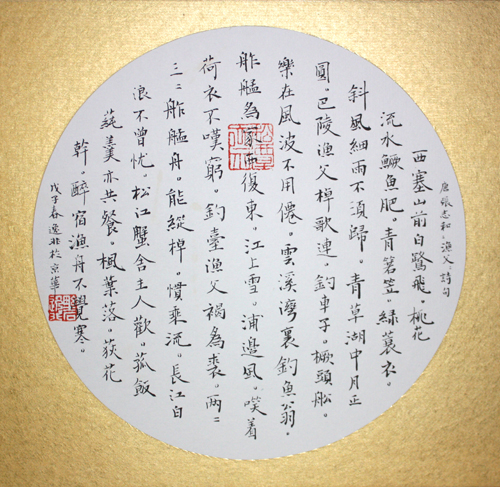 唐張志和，漁父，詩句
西塞山前白鷺飛。桃花
流水鱖魚肥。青箬笠。綠蓑衣。
斜風細雨不須歸。青草湖中月正
圓。巴陵漁父棹歌連。釣車子。橛頭船。
樂在風波不用僊。雲溪灣裏釣魚翁。
舴艋為家西復東。江上雪。浦邊風。咲着
荷衣不嘆窮。釣臺漁父褐為裘。兩：
三：舴艋舟。能縱棹。慣乘流。長江白
浪不曾忧。松江蟹舍主人歡。菰飯
蒓羹亦共餐。楓葉落。荻花
幹。醉宿漁舟不覺寒。
戊子春逸非於京華